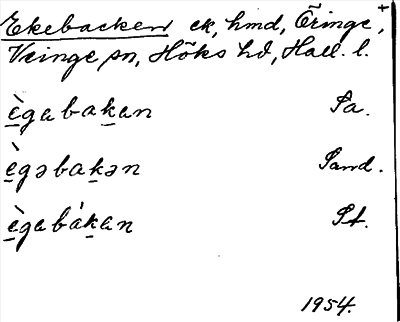 Ekebacken ek, hmd, Öringe+,
Veinge sn, Höks hd, Hall. l.
ègabakan Sa.
ègəbakən Sand.
ègabákan St.
1954.